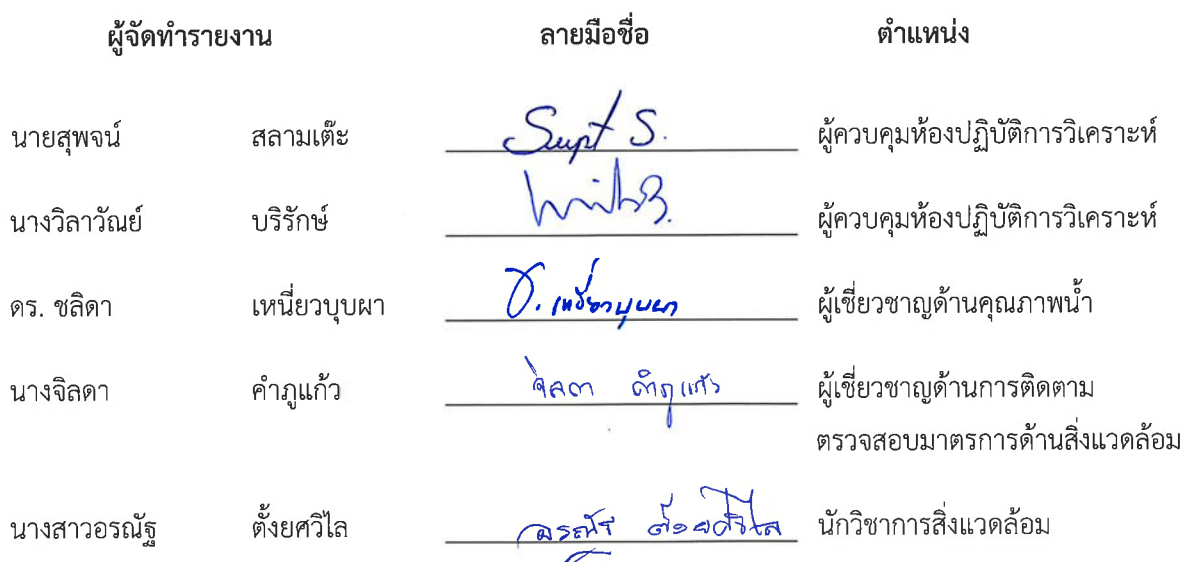 ผู้จัดทำรายงาน ลายมือชื่อ ตำแหน่ง
นายสุพจน์ สลามเต๊ะ Supt S. ผู้ควบคุมห้องปฏิบัติการวิเคราะห์
นางวิลาวัณย์ บริรักษ์ ผู้ควบคุมห้องปฏิบัติการวิเคราะห์
ดร. ชลิดา เหนี่ยวบุบผา ช. เหนี่ยวบุบผา ผู้เชี่ยวชาญด้านคุณภาพน้ำ
นางจิลดา คำภูแก้ว จิลดา คำภูแก้ว ผู้เชี่ยวชาญด้านการติดตาม
ตรวจสอบมาตรการด้านสิ่งแวดล้อม
นางสาวอรณัฐ ตั้งยศวิไล อรณัฐ ตั้งยศวิไล นักวิชาการสิ่งแวดล้อม